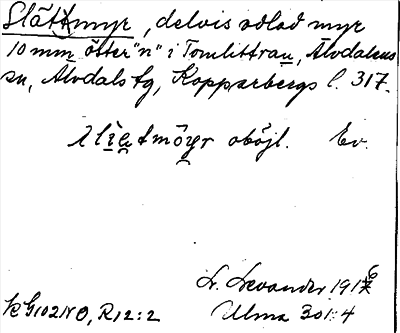 Slåttmyr, delvis odlad myr
10 mm öster "n" i Tomlittrau, Älvdalens
sn, Älvdals tg, Kopparbergs l. 317.
slietmöyr oböjl. Ev.
L. Levander 1916
KG102NO, R12:2 Ulma 301:4